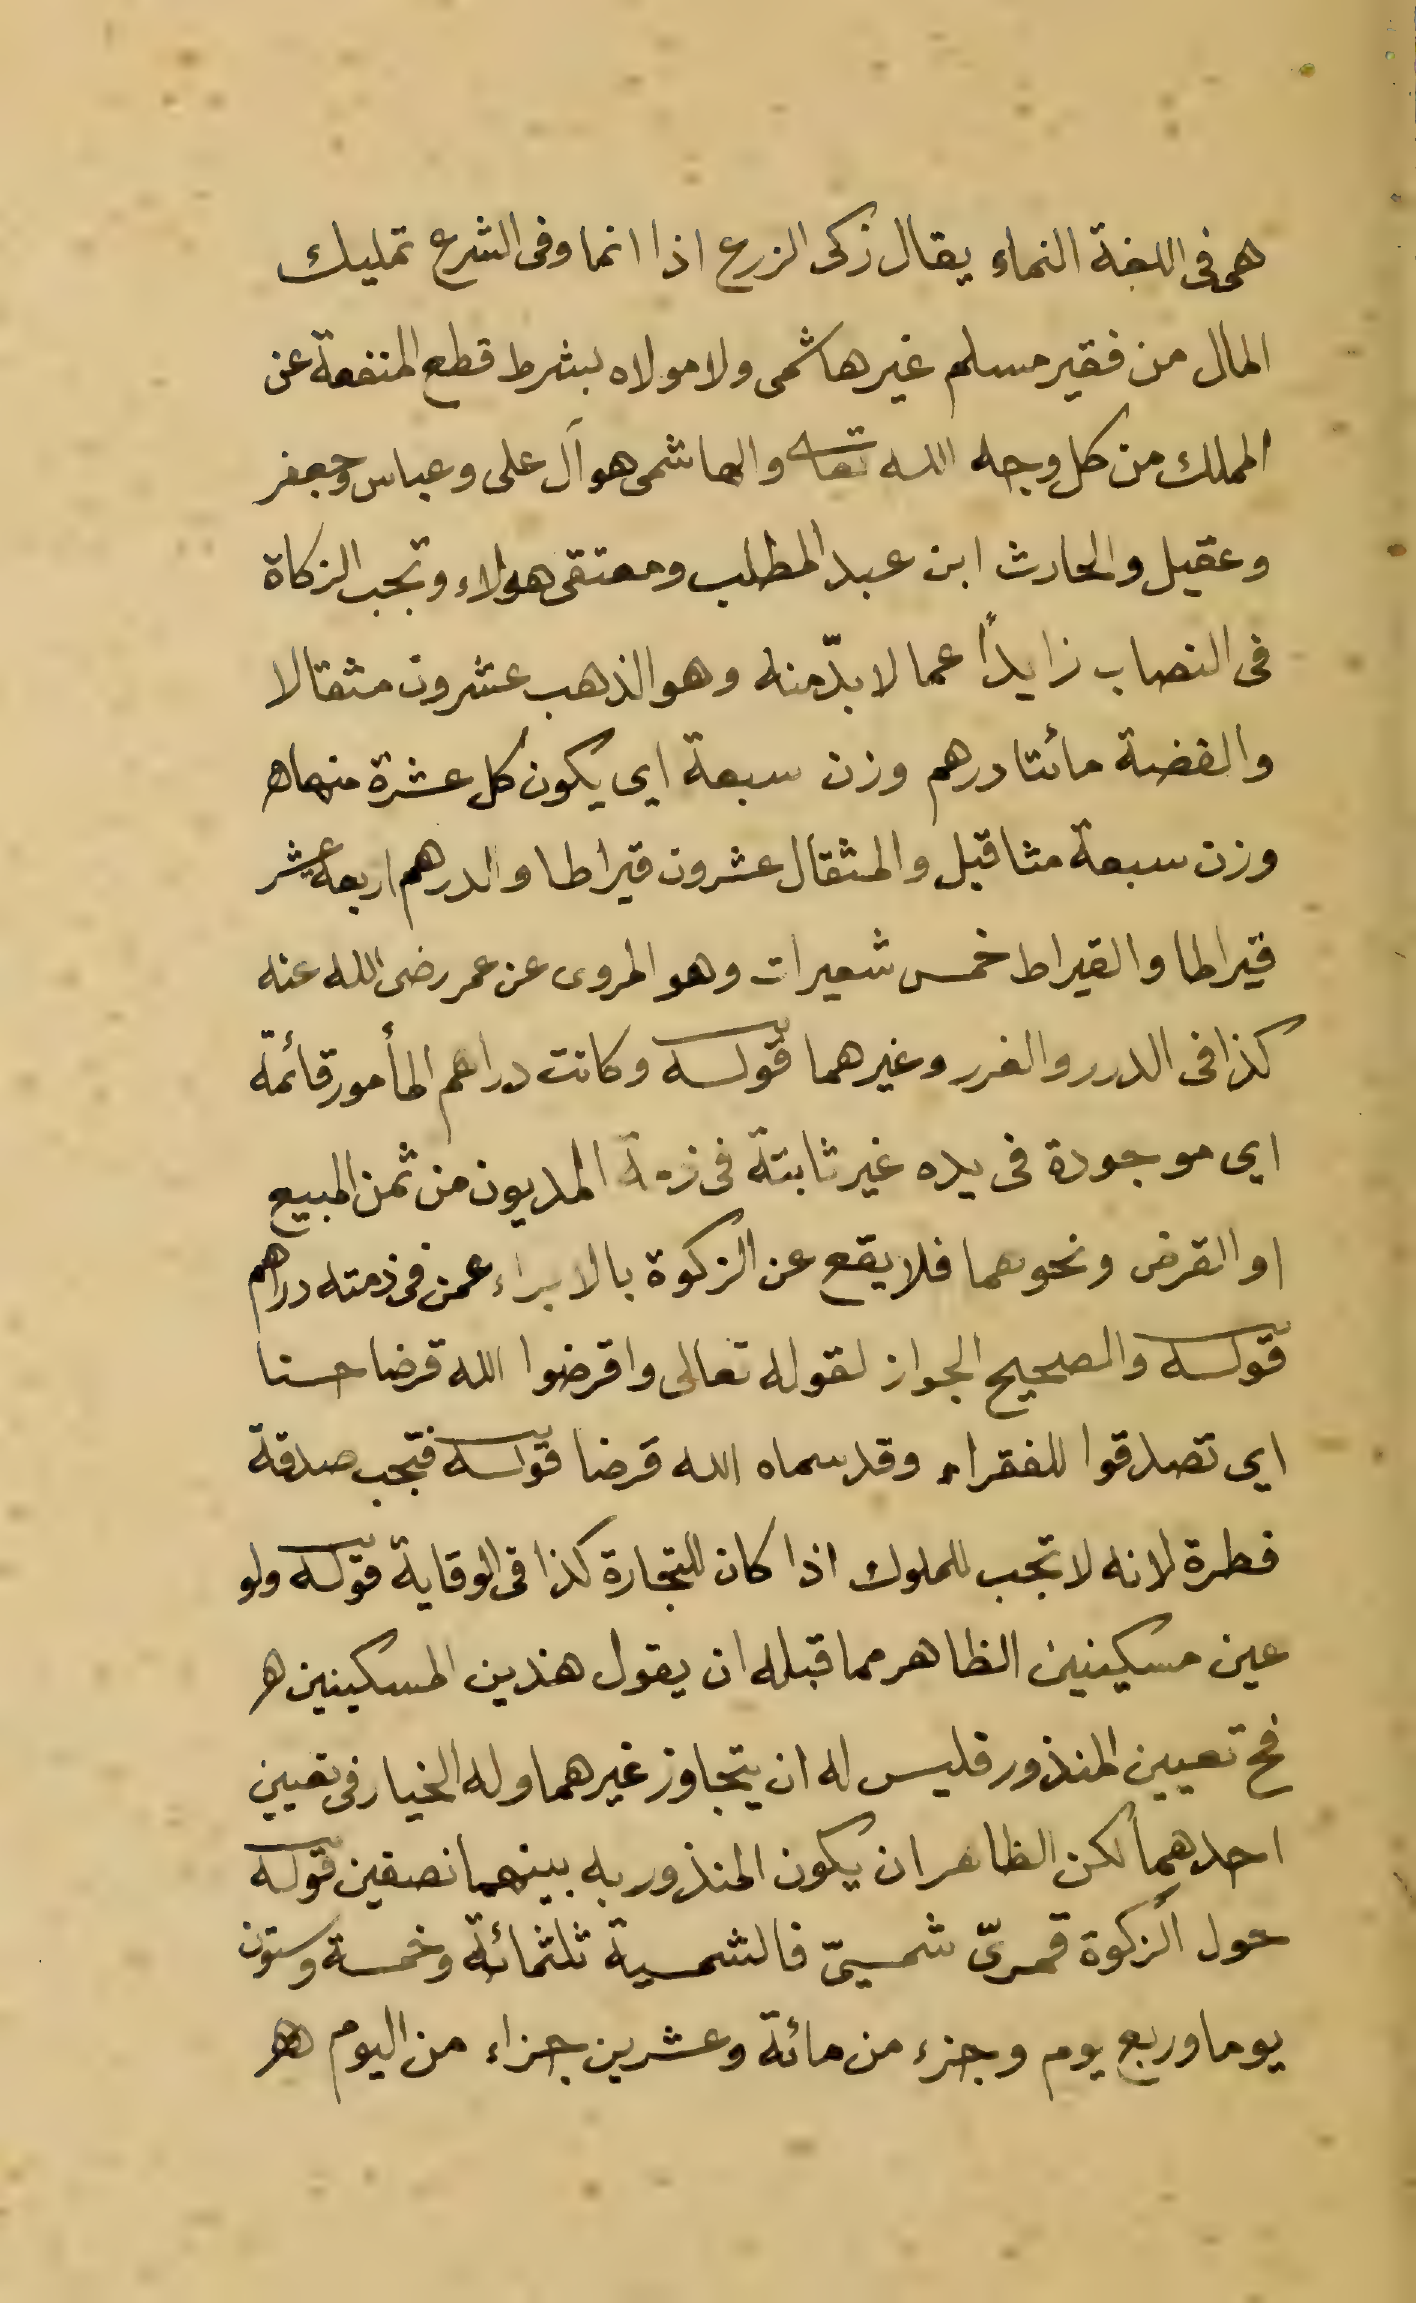 هى فى اللغة النماء يقال زكى الزرع اذا انما وفى الشرع تمليك
المال من فقير مسلم غير هاشمى ولا مولاه بشرط قطع المنفعة عن
المملك من كل وجه الله تعا والهاشمى هو آل على وعباس وجعفر
وعقيل والحارث ابن عبد المطلب ومعتقى هولاء وتجب الزكاة
فى النصاب زايداً عما لا بدّ منه وهو الذهب عشرون مثقالا
والفضة مائتا درهم وزن سبعة اى يكون كل عشرة منها ه
وزن سبعة مثاقيل والمثقال عشرون قيراطا والدرهم اربعة عشر
قيراطا والقيراط خمس شعيرات وهو المروى عن عمر رضى الله عنه
كذا فى الدرر والغرر وغيرهما قوله وكانت دراهم المأمور قائمة
اى موجودة فى يده غير ثابتة فى ذمة المديون من ثمن المبيع
او القرض ونحوهما فلا يقع عن الزكوة بالابراء عمن فى ذمته دراهم
قوله والصحيح الجواز لقوله تعالى واقرضوا الله قرضا حسنا
اى تصدقوا للفقراء وقد سماه الله قرضا قوله فتجب صدقة
فطرة لانه لا تجب للملوك اذا كان للتجارة كذا فى الوقاية قوله ولو
عين مسكينين الظاهر مما قبله ان يقول هذين المسكينين ه
فح تعيين المنذور فليس له ان يتجاوز غيرهما وله الخيار فى تعيين
احدهما لكن الظاهر ان يكون المنذور به بينهما نصفين قوله
حول الزكوة قمرىّ شمسىّ فالشمسية ثلثمائة وخمسة وستون
يوما وربع يوم وجزء من مائة وعشرين جزاء من اليوم ه